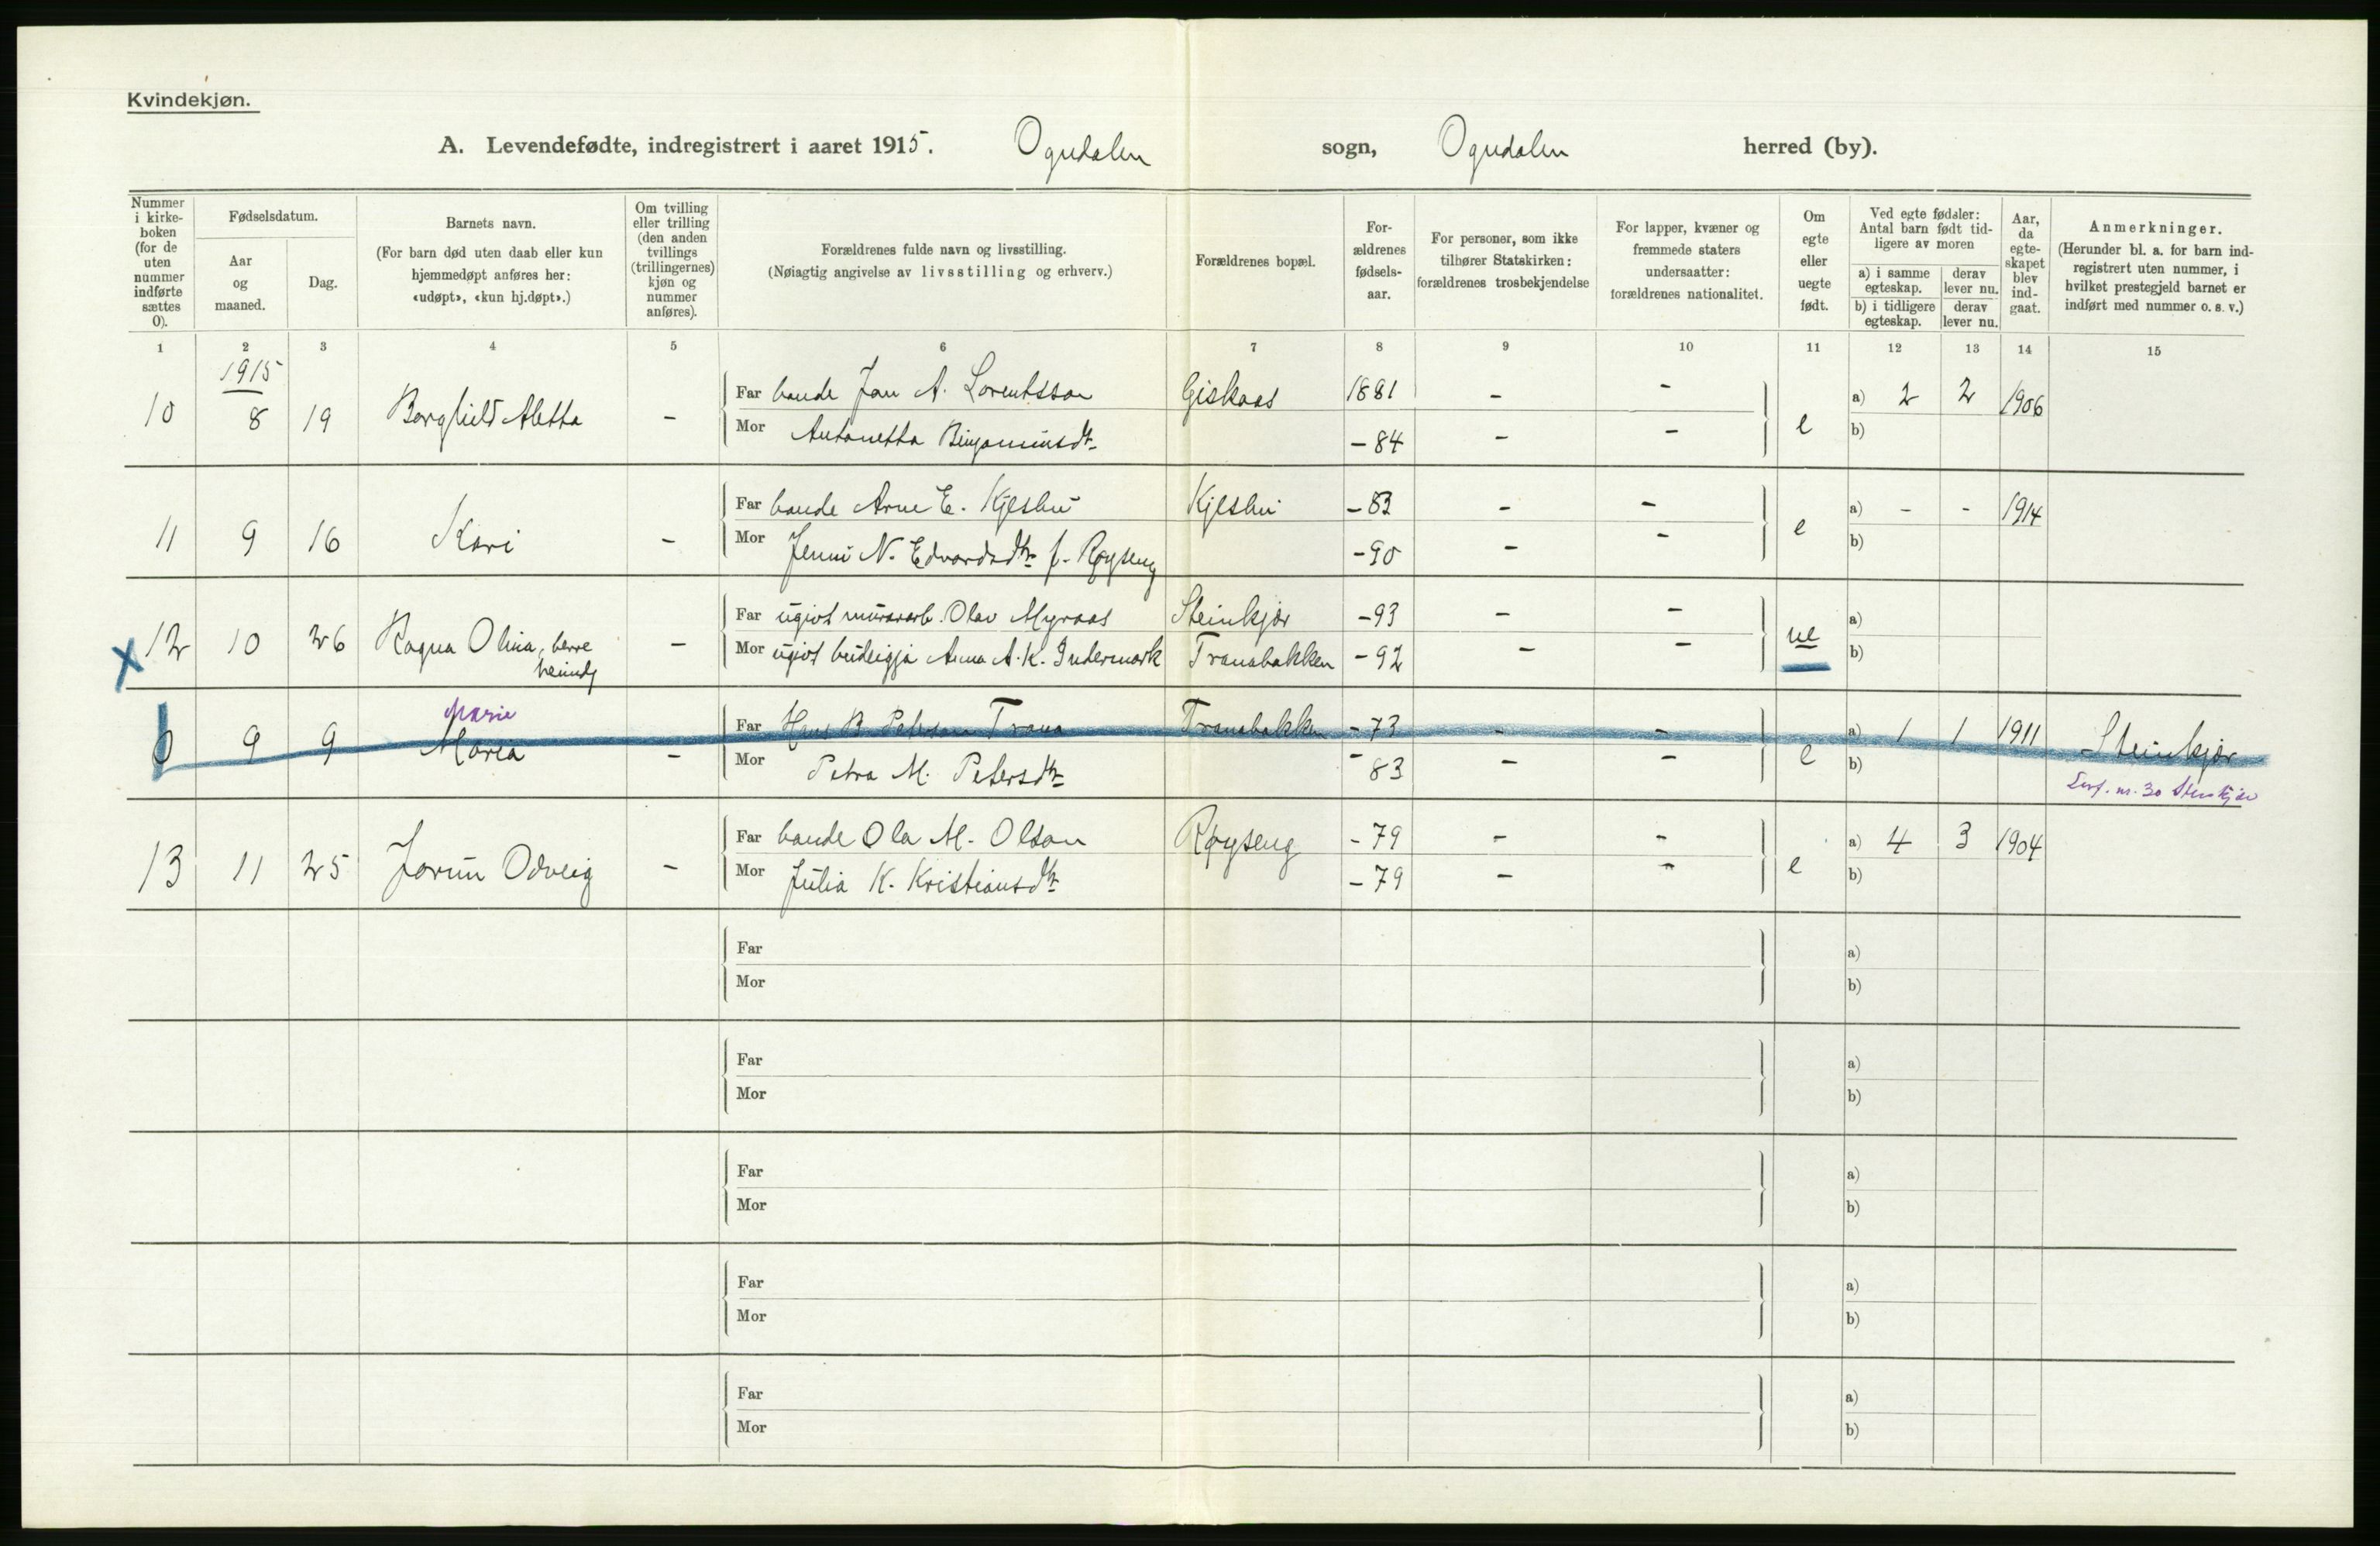 Kvindekjøn.
A. Levendefødte, indregistrert i aaret 1915. Ogndalen sogn, Ogndalen herred (by).
Nummer i kirke-boken (for de uten nummer indførte sættes 0).
Fødselsdatum.
Aar og maaned.
Dag.
Barnets navn.
(For barn død uten daab eller kun hjemmedøpt anføres her: «udøpt», «kun hj.døpt».)
Om tvilling eller trilling (den anden tvillings (trillingernes) kjøn og nummer anføres).
Forældrenes fulde navn og livsstilling.
(Nøiagtig angivelse av livsstilling og erhverv.)
Forældrenes bopæl.
For-ældrenes fødsels-aar.
For personer, som ikke tilhører Statskirken: forældrenes trosbekjendelse
For lapper, kvæner og fremmede staters undersaatter: forældrenes nationalitet.
Om egte eller uegte født.
Ved egte fødsler: Antal barn født tid-ligere av moren
a) i samme egteskap.
derav lever nu.
b) i tidligere egteskap.
derav lever nu.
Aar, da egte-skapet blev ind-gaat.
Anmerkninger.
(Herunder bl. a. for barn ind-registrert uten nummer, i hvilket prestegjeld barnet er indført med nummer o. s. v.)
1 2 3 4 5 6 7 8 9 10 11 12 13 14 15
1915
10 8 19 Borghild Aletta - Far bonde Jon A. Lorentsson Giskaas 1881 - - e a) 2 2 1906
Mor Antonetta Bingaminsdtr - 84 - - b)
11 9 16 Kari - Far bonde Arne E. Kjeshui Kjeshui - 83 - - e a) - - 1914
Mor Jenni N. Edvardsdtr f. Røyseng - 90 - - b)
x 12 10 26 Ragna Olina, berre heimdj - Far ugivt murararb. Olav Myraas Steinkjær - 93 - - ue a)
Mor ugivt budeigja Anna A. K. Indermark Tranabakken - 92 - - b)
Marie
0 9 9 Maria - Far Hans B. Peterson Trana Tranabakken - 73 - - e a) 1 1 1911 Steinkjær
Mor Petra M. Petersdtr - 83 - - b)
nr. 30 Stenkjær
13 11 25 Jorun Odveig - Far bonde Ola M. Olson Røyseng - 79 - - e a) 4 3 1904
Mor Julia K. Kristiansdtr - 79 - - b)
Far a)
Mor b)
Far a)
Mor b)
Far a)
Mor b)
Far a)
Mor b)
Far a)
Mor b)